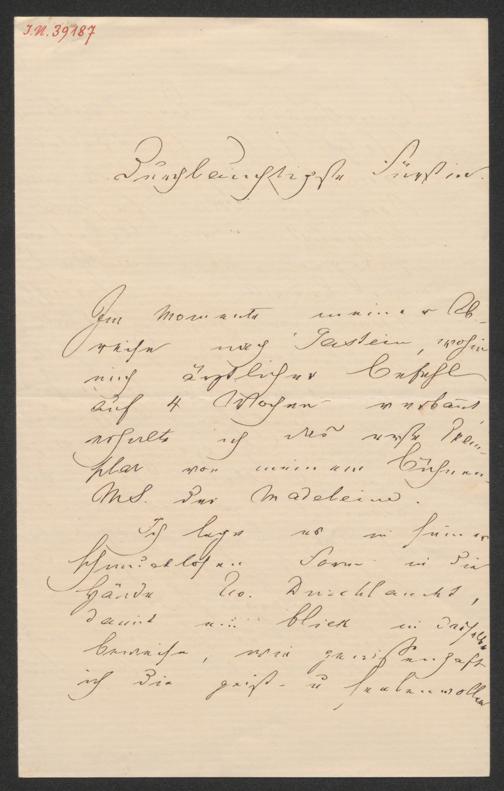 I.N. 39187
Durchlauchtigste Fürstin.
Im Momente meiner Ab-
reise nach Gastein, wohin
mich ärztlicher Befehl
auf 4 Wochen verbannt
erhalte ich das erste Exem-
plar von meinem Bühnen-
MS. der Madeleine.
Ich lege es in seiner
schmucklosen Form in die
Hände Ew. Durchlaucht,
damit ein Blick in dasselbe
beweise, wie gewissenhaft
ich die geist- u seelenvollen